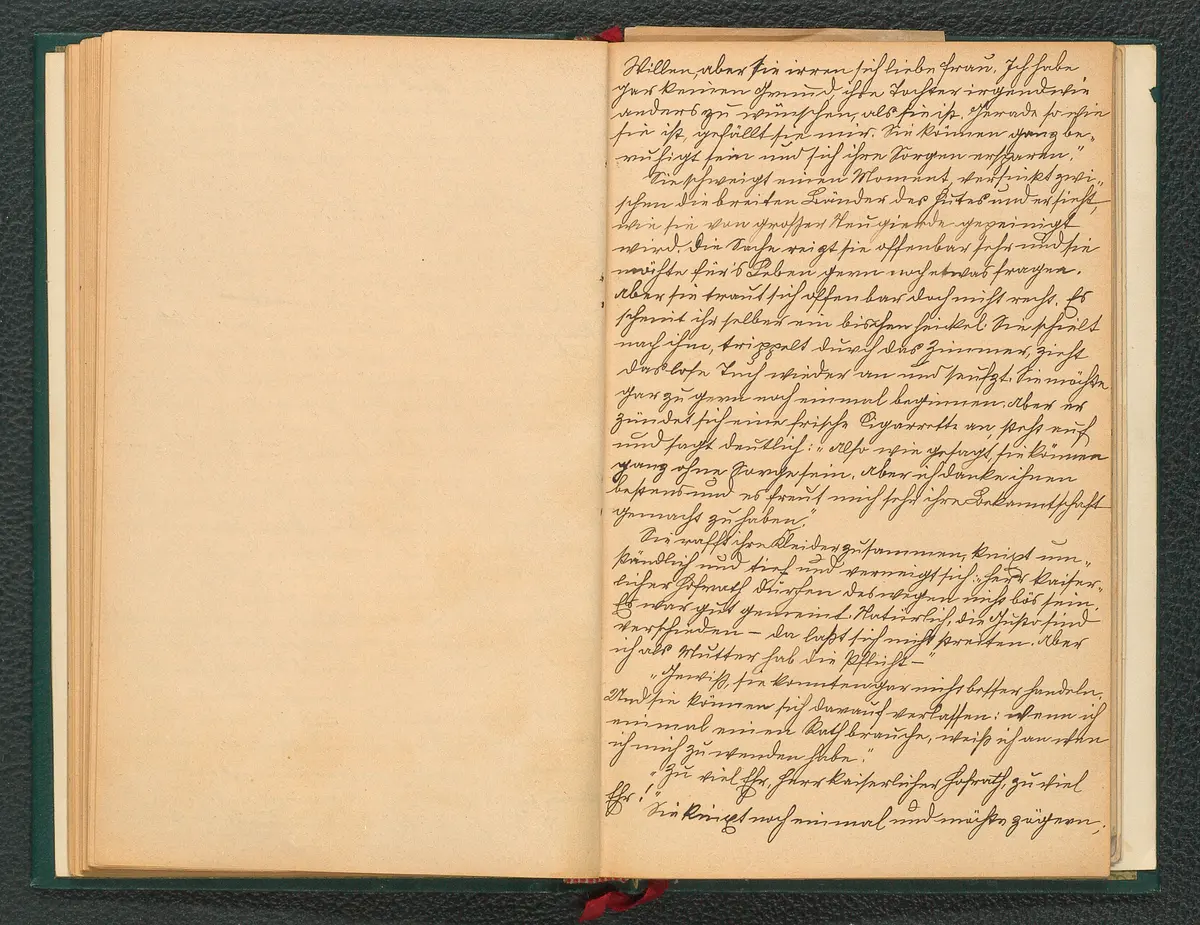 Willen, aber sie irren sich liebe Frau. Ich habe
gar keinen Grund, ihre Tochter irgendwie
anders zu wünschen, als sie ist. Gerade so wie
sie ist, gefällt sie mir. Sie können ganz be-
ruhigt sein und sich ihre Sorgen ersparen."
Sie schweigt einen Moment, versinkt zwi-
schen die breiten Bänder des Hutes und er sieht,
wie sie von grosser Neugierde gepeinigt
wird. Die Sache reizt sie offenbar sehr und sie
möchte für's Leben gern noch etwas fragen.
Aber sie traut sich offenbar doch nicht recht. Es
scheint ihr selber ein bischen heickel. Sie schielt
nach ihm, trippelt durch das Zimmer, zieht
das lose Tuch wieder an und seufzt. Sie möchte
gar zu gern noch einmal beginnen. Aber er
zündet sich eine frische Cigarrette an, steht auf
und sagt deutlich: „Also wie gesagt, sie können
ganz ohne Sorge sein. Aber ich danke ihnen
bestens und es freut mich sehr ihre Bekanntschaft
gemacht zu haben."
Sie rafft ihre Kleider zusammen, knixt um-
ständlich und tief und verneigt sich: „Herr kaiser-
licher Hofrath dürfen deswegen nicht bös sein.
Es war gut gemeint. Natürlich, die Gusto sind
verschieden – da laßt sich nicht streiten. Aber
ich als Mutter hab die Pflicht –"
„Gewiß, sie konnten gar nicht besser handeln.
Und sie können sich darauf verlassen: wenn ich
einmal einen Rath brauche, weiß ich an wen
ich mich zu wenden habe."
„Zu viel Ehr, Herr kaiserlicher Hofrath, zu viel
Ehr!"
Sie knixt noch einmal und möchte zögern,